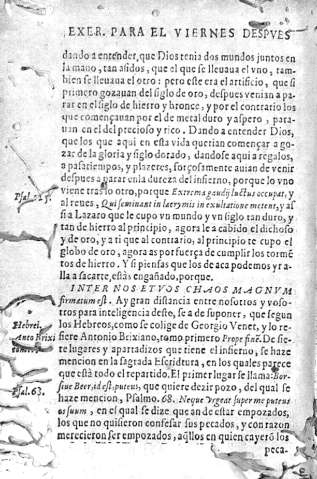 EXER. PARA EL VIERNES DESPVES
dando a entender, que Dios tenia dos mundos juntos en
la mano, tan asidos, que el que se lleuaua el vno, tam-
bien se lleuaua el otro: pero este era el artificio, que si
primero gozauan del siglo de oro, despues venian a pa-
rar en el siglo de hierro y bronce, y por el contrario los
que començauan por el de metal duro y aspero, para-
uan en el del precioso y rico. Dando a entender Dios,
que los que aqui en esta vida querian començar a go-
zar de la gloria y siglo dorado, dandose aqui a regalos,
a pasatiempos, y plazeres, forçosamente auian de venir
despues a parar en la dureza del infierno, porque lo vno
viene tras lo otro, porque Extrema gaudij luctus occupat, y
al reues, Qui seminant in lacrymis in exultatione metent, y al
si a Lazaro que le cupo vn mundo y vn siglo tan duro, y
tan de hierro al principio, agora le a cabido el dichoso
y de oro, y a ti que al contrario, al principio te cupo el
globo de oro, agora as por fuerça de cumplir los torme
tos de hierro. Y si piensas que los de aca podemos yr a-
lla a sacarte, estás engañado, porque.
INTER NOS ET VOS CHAOS MAGNVM
firmatum est. Ay gran distancia entre nosotros y voso-
tros para inteligencia deste, se a de suponer, que segun
los Hebreos, como se colige de Georgio Venet, y lo re-
fiere Antonio Brixiano, tomo primero Prope finẽ. De sie-
te lugares y apartadizos que tiene el infierno, se haze
mencion en la sagrada Escritura, en los quales parece
que està todo el repartido. El primer lugar se llama: Bor-
siue Beer, id est, puteus, que quiere dezir pozo, del qual se
haze mencion, Psalmo. 68. Neque vrgeat super me puteus
os suum, en el qual se dize que an de estar empozados,
los que no quisieron confesar sus pecados, y con razon
merecieron ser empozados, aq̃llos en quien cayerõ los
peca-
Psal. 125.
Hebrei.
Anto Brixi
Psal. 63.